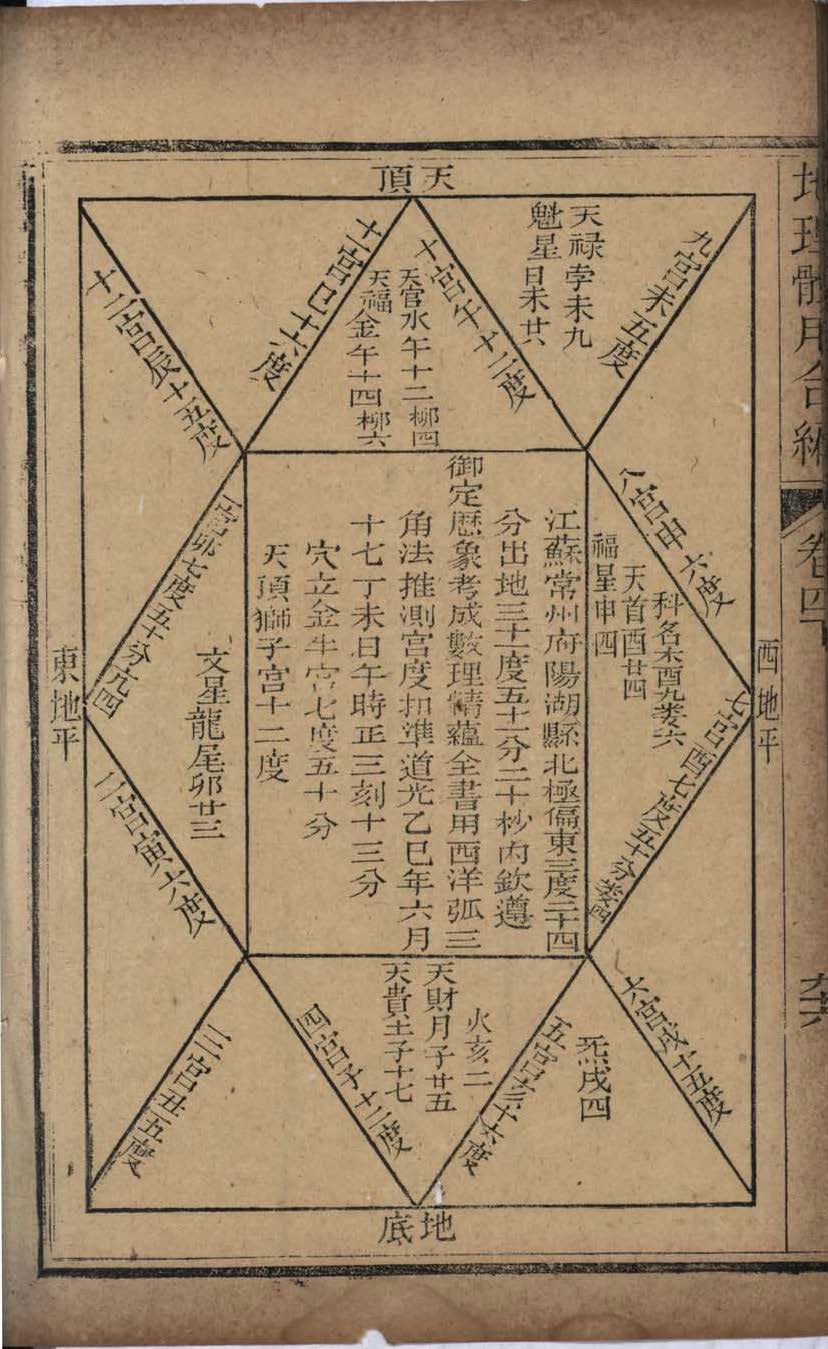 地理體用合編
卷四下
天頂
九宮未五度
天祿孛未九
魁星日未廿六
十宮午十二度
天官水午十二柳四
天福金午十四柳六
十一宮巳十六度
十二宮辰十五度
八宮申六度
科名木酉九婁六
天首酉廿四
福星申四
西地平
七宮酉七度五十分婁四
江蘇常州府陽湖縣北極偏東三度二十四
分出地三十一度五十一分二十秒內欽遵
御定歷象考成數理精蘊全書用西洋弧三
角法推測宮度扣準道光乙巳年六月
十七丁未日午時正三刻十三分
穴立金牛宮七度五十分
天頂獅子宮十二度
一宮卯七度五十分亢四
東地平
文星龍尾卯廿三
二宮寅六度
六宮戌十五度
炁戌四
五宮亥十六度
火亥二
天財月子廿五
天貴土子十七
四宮子十二度
三宮丑五度
地底